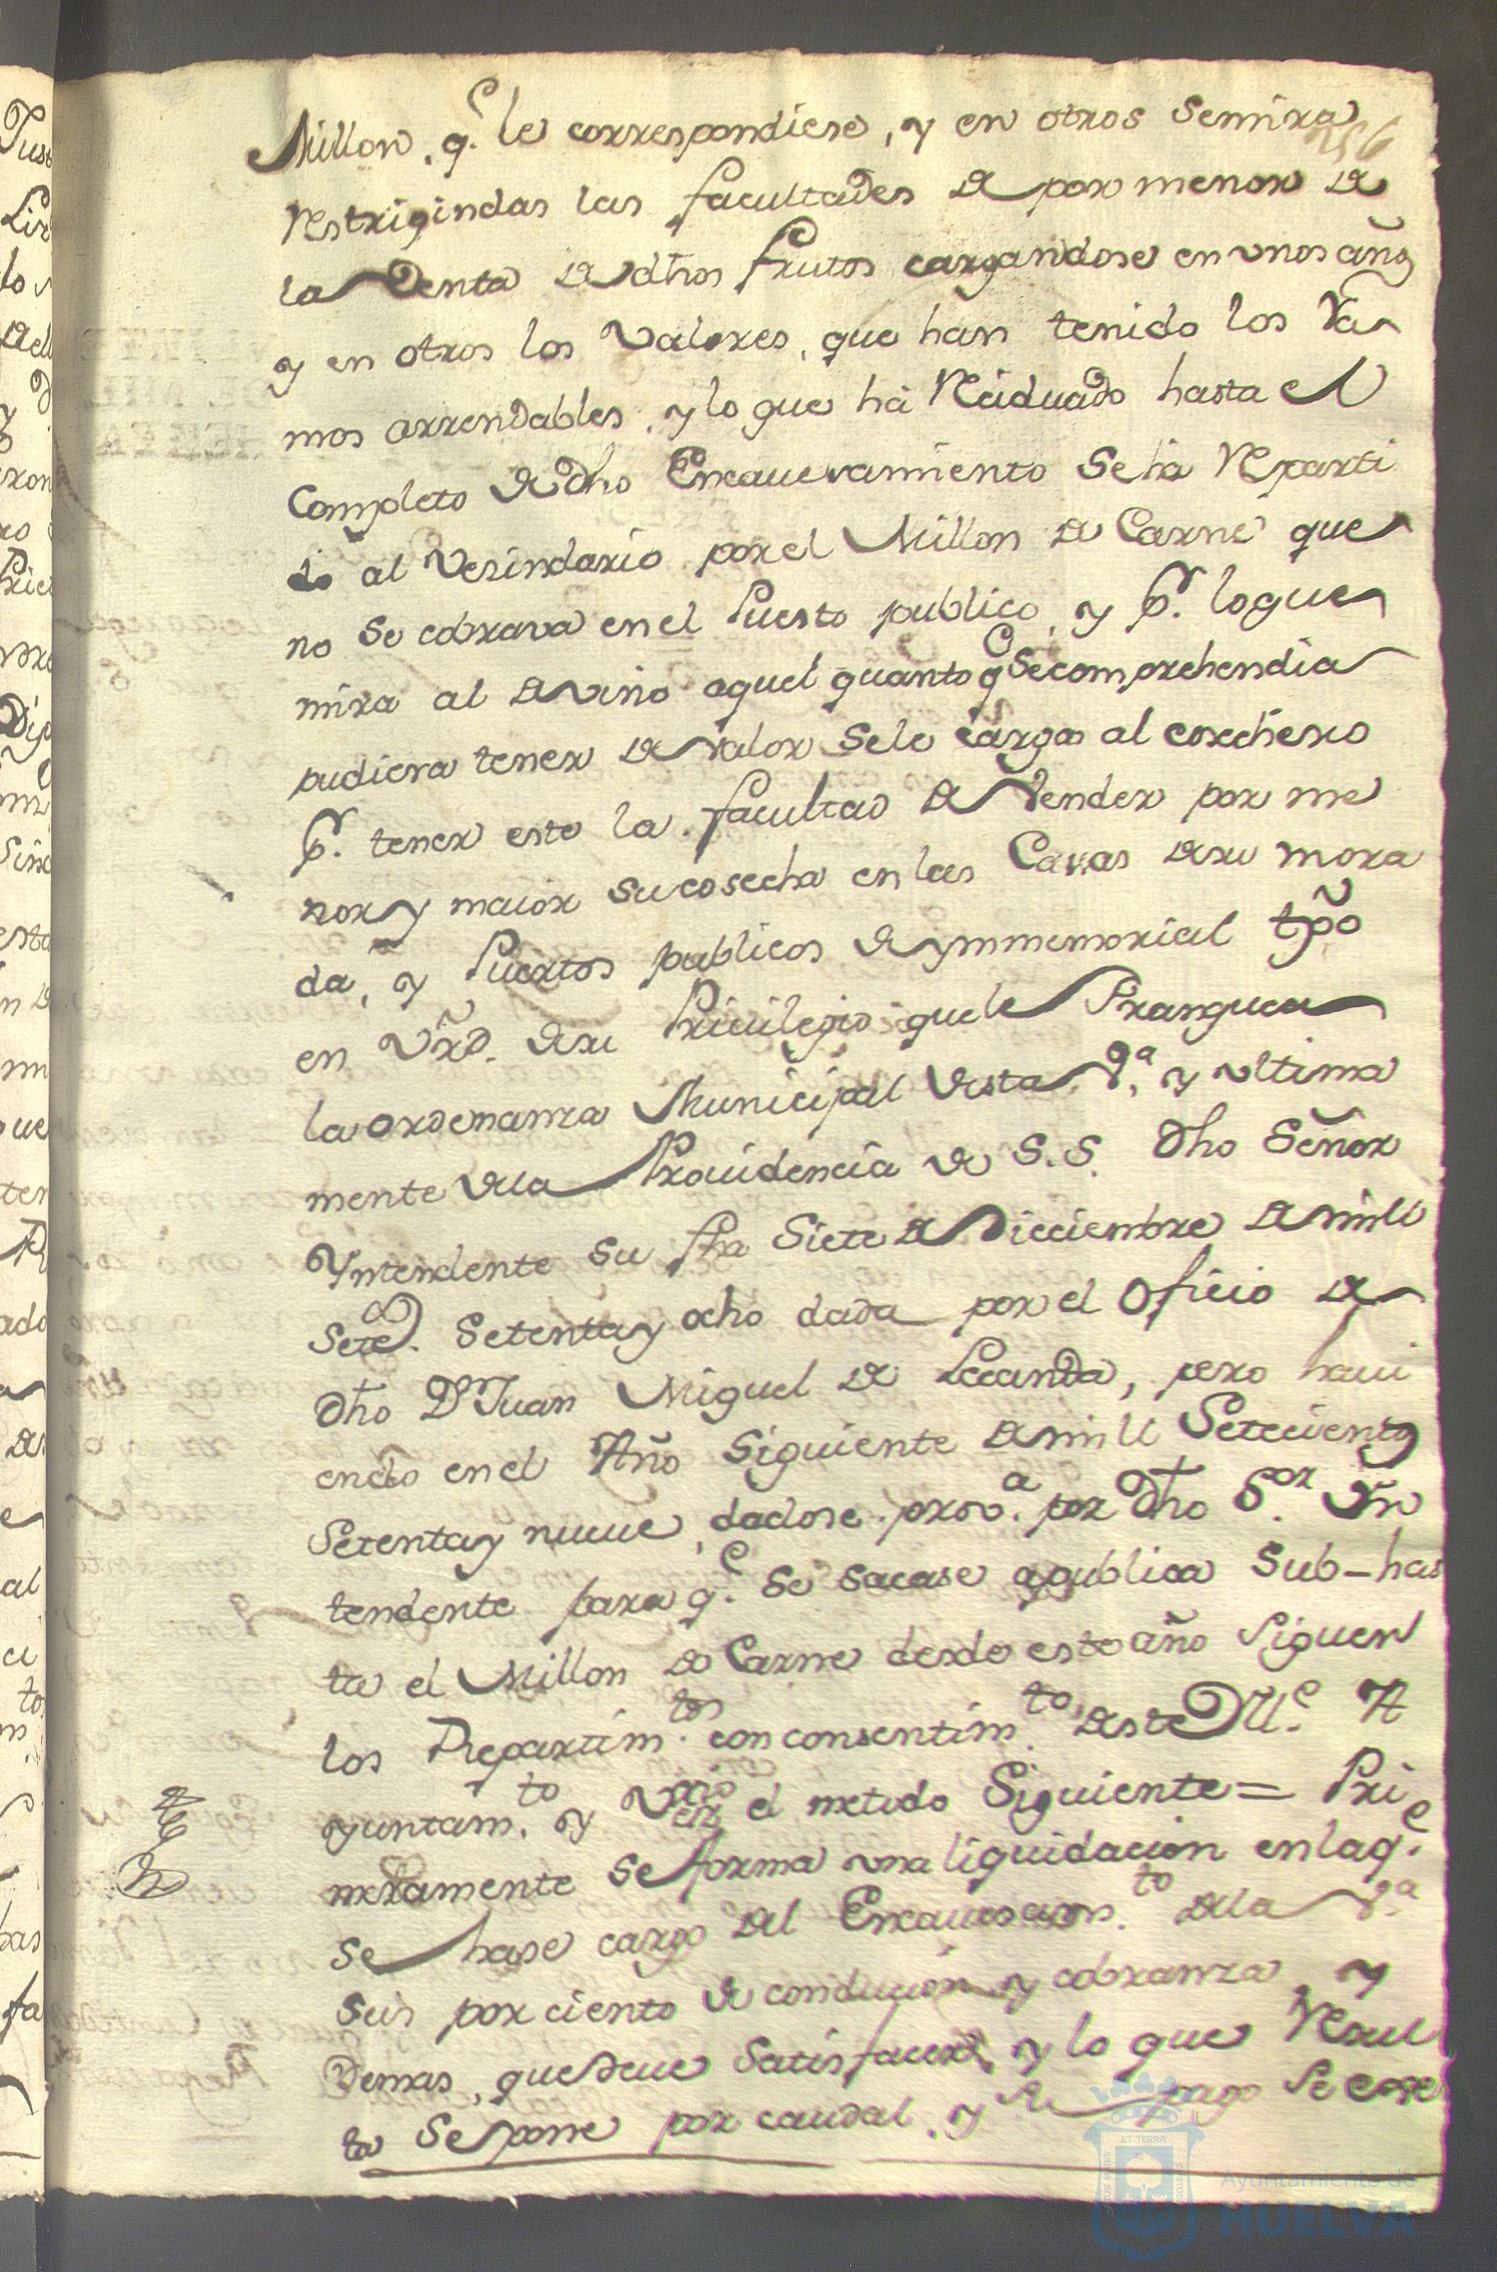 Millon, q.e le correspondiese, y en otros se mira
restrigindas las facultades de por menor de
la Venta de dhos frutos cargandose en unos años
y en otros los valores, que han tenido los Ra-
mos arrendables, y lo que há reciduado hasta el
Completo de dho Encavezamiento se há reparti
do al Vesindario por el Millon de Carne que
no se cobrava en el Puesto publico, y p.r lo que
mira al de vino aquel quanto q.e se comprehendia
pudiera tener de valor se le cargó al cosechero
p.r tener este la facultad de Vender por me
nor y maior su cosecha en las Casas de su mora
da, y Puestos publicos de ymmemorial tpõ
en Vrd. de su Privilegio que le Franquea
la ordenanza Municipal de esta V.a y ultima
mente de la Providencia de S. S. dho Señor
Yntendente su fha Siete de Dicciembre de mill
Setez. Setenta y ocho dada por el Oficio de
dho D.n Juan Miguel de Lecanda, pero havi
endo en el Año Siguiente de mill Setecientos
Setenta y nueve, dadose prov.a por dho S.or Yn
tendente para q.e se sacase a publica Sub-has
ta el Millon de Carne desde este año siguen
los Repartim.tos con consentim.to de este Yll.e A
yuntam.to y Vez.rio en el metodo Siguiente = Pri
meramente se forma una liquidacion en la q.e
se hase cargo del Encavesam.to de la V.a
seis por ciento de conducion y cobranza, y
Demas, que deve satisfacer, y lo que resul
ta se pone por caudal, y su pago se
256
Ayuntamiento de
HUELVA